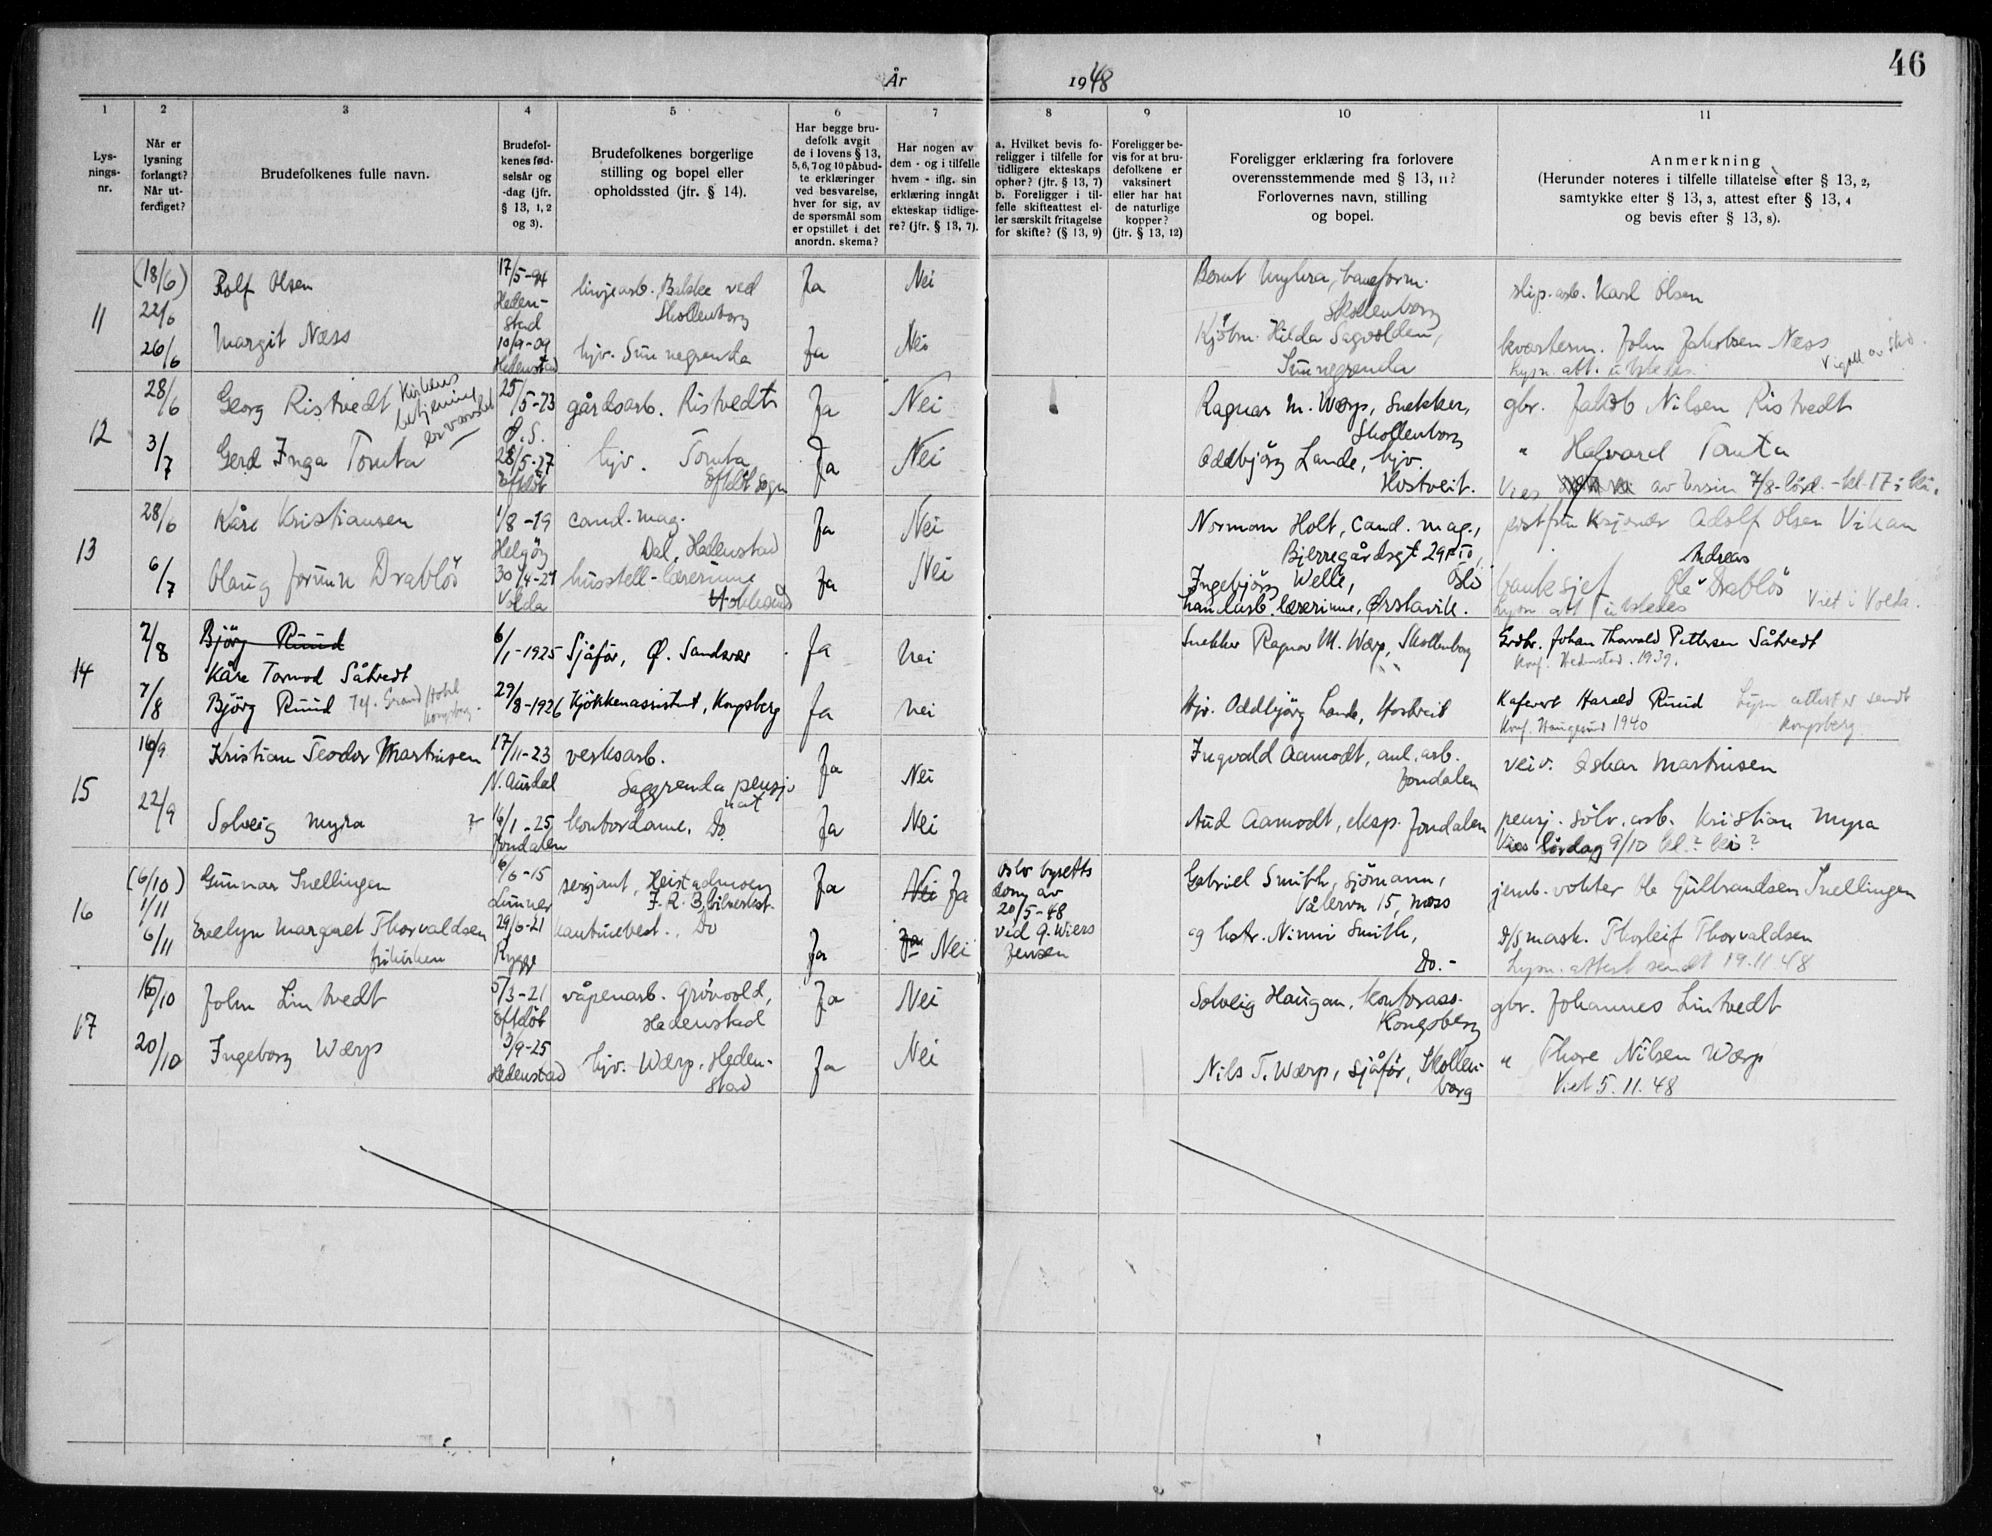 46
År 1948
1 2 3 4 5 6 7 8 9 10 11
Lys-
nings-
nr.
Når er
lysning
forlangt?
Når ut-
ferdiget?
Brudefolkenes fulle navn.
Brudefol-
kenes fød-
selsår og
-dag (jfr.
§ 13, 1, 2
og 3).
Brudefolkenes borgerlige
stilling og bopel eller
opholdssted (jfr. § 14).
Har begge bru-
defolk avgit
de i lovens § 13,
5, 6, 7 og 10 påbud-
te erklæringer
ved besvarelse,
hver for sig, av
de spørsmål som
er opstillet i det
anordn. skema?
Har nogen av
dem - og i tilfelle
hvem - iflg. sin
erklæring inngåt
ekteskap tidlige-
re? (jfr. § 13, 7).
a. Hvilket bevis fo-
religger i tilfelle for
tidligere ekteskaps
ophør? (jfr. § 13, 7)
b. Foreligger i til-
felle skifteattest el-
ler særskilt fritagelse
for skifte? (§ 13, 9)
Foreligger be-
vis for at bru-
defolkene er
vaksinert
eller har hat
de naturlige
kopper?
(jfr. § 13, 12)
Foreligger erklæring fra forlovere
overensstemmende med § 13, 11?
Forlovernes navn, stilling
og bopel.
Anmerkning
(Herunder noteres i tilfelle tillatelse efter § 13, 2,
samtykke efter § 13, 3, attest efter § 13, 4
og bevis efter § 13, 8).
11
(18/6)
22/6
26/6
Rolf Olsen
17/5-94
Heden-
stad
linjearb. Bakke ved
Skollenborg
Ja
Nei
Bernt Myhra, baneform.
Skollenborg
slip. arb. Karl Olsen
Margit Næss
10/9-09
Hedenstad
hjv. Sunnegrenda
Ja
Nei
Kjøbm. Hilda Sagvolden,
Sunnegrenda
kvarterm. John Jakobsen Næss
Lysn. att. utstedes.
12
28/6
3/7
Georg Ristvedt
Kirkens
betjening
er varslet
25/5-23
Ø.S.
gårdsarb. Ristvedt
Ja
Nei
Ragnar M. Wærp, Snekker,
Skollenborg
gbr. Jakob Nilsen Ristvedt
Gerd Inga Tomta
28/5-27
Efteløt
hjv. Tomta
Efteløt sogn
Ja
Nei
Oddbjørg Lande, hjv.
Hostveit.
" Halvard Tomta
Vies av 7/8-lørd. - kl. 17 i ki.
13
28/6
6/7
Kåre Kristiansen
1/8-19
Helgøy
cand. mag.
Dal, Hedenstad
Ja
Nei
Norman Holt, Cand. mag.,
Bjerregårdsgt 29 IV,
Oslo
Adolf Olsen Vikan
Olaug Jorunn Drabløs
30/4-21
Volda
husstell-lærerinne
Hokksund
Ja
Nei
Ingebjørg Welle,
handarb. lærerinne, Ørstavik.
Andreas
banksjef Ole Drabløs
Lysn. att utstedes Viet i Volda.
14
2/8
7/8
Bjørg Ruud
Kåre Tormod Såtvedt
6/1-1925
Sjåfør, Ø. Sandsvær
Ja
nei
Snekker Ragnar M. Wærp, Skollenborg
Grdbr. Johan Thorvald Pettersen Såtvedt
Konf. Hedenstad. 1939.
Bjørg Ruud
Tlf. Grand Hotel
Kongsberg.
29/8-1926
Kjøkkenassistent, Kongsberg
Ja
nei
Hjv. Oddbjørg Lande, Hostveit
Kafevert Harald Ruud
Konf. Haugesund 1940
Lysn attest er sendt
Kongsberg
15
16/9
22/9
Kristian Teodor Martinsen
17/11-23
N. Aurdal
verksarb.
Saggrenda pensjo
nat
Ja
Nei
Ingvald Aamodt, anl. arb.
Jondalen
veiv. Oskar Martinsen
Solveig Myra
16/1-25
Jondalen
kontordame, Do
Ja
Nei
Aud Aamodt, eksp. Jondalen
pensj. sølv. arb. Kristian Myra
Vies lørdag 9/10 kl.? ki?
16
(6/10)
1/11
6/11
Gunnar Snellingen
6/6-15
Lunner
sersjant, Heistadmoen
I.R. 3,
Ja
Nei Ja
Oslo byretts
dom av
20/5-48
ved Q. Wiers
Jensen
Gabriel Smith, sjømann,
Vålervn 15, Moss
jernb. vokter Ole Gulbrandsen Snellingen
Evelyn Margaret Thorvaldsen
frikirken
29/6-21
Rygge
kantinebest., Do
Ja
Ja Nei
og hstr. Ninni Smith,
Do. -
D/S mask. Thorleif Thorvaldsen
Lysn. attest sendt 19.11 48
17
16/10
20/10
John Lintvedt
5/3-21
Efteløt
våpenarb. Grøvvold,
Hedenstad
Ja
Nei
Solveig Haugan, kontorass.
Kongsberg
gbr. Johannes Lintvedt
Ingeborg Wærp
3/9-25
Hedenstad
hjv. Wærp, Heden-
stad
Ja
Nei
Nils T. Wærp, sjåfør, Skollen-
borg
" Thore Nilsen Wærp
Viet 5.11.48